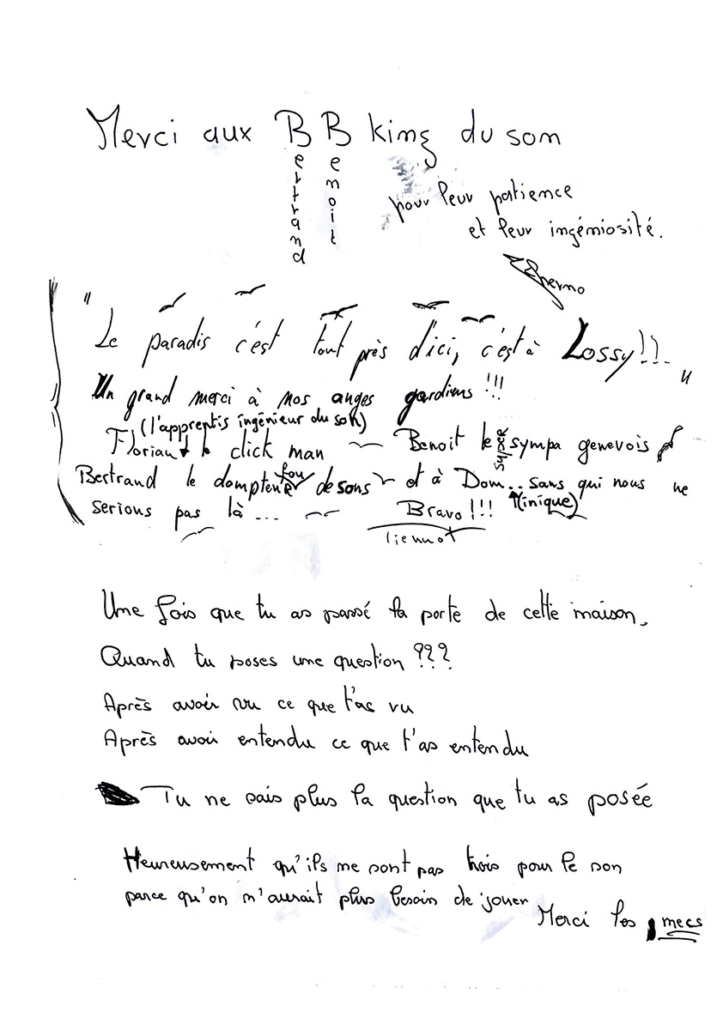 Merci aux B B king du son
Bertrand
Benoit
pour leur patience
et leur ingéniosité.
"Le paradis c'est tout près d'ici, c'est à Lossy!!."
Un grand merci à nos anges gardiens !!!
(l'apprentis ingénieur du son)
Florian click man ~ Benoit le super sympa genevois
Bertrand le dompteur fou de sons ~ et à Dom.. sans qui nous ne
(inique)
serions pas là ... ~~ Bravo!!!
Une fois que tu as passé la porte de cette maison,
Quand tu poses une question ???
Après avoir vu ce que t'as vu
Après avoir entendu ce que t'as entendu
Tu ne sais plus la question que tu as posée
Heureusement qu'ils ne sont pas trois pour le son
parce qu'on n'aurait plus besoin de jouer
Merci les mecs